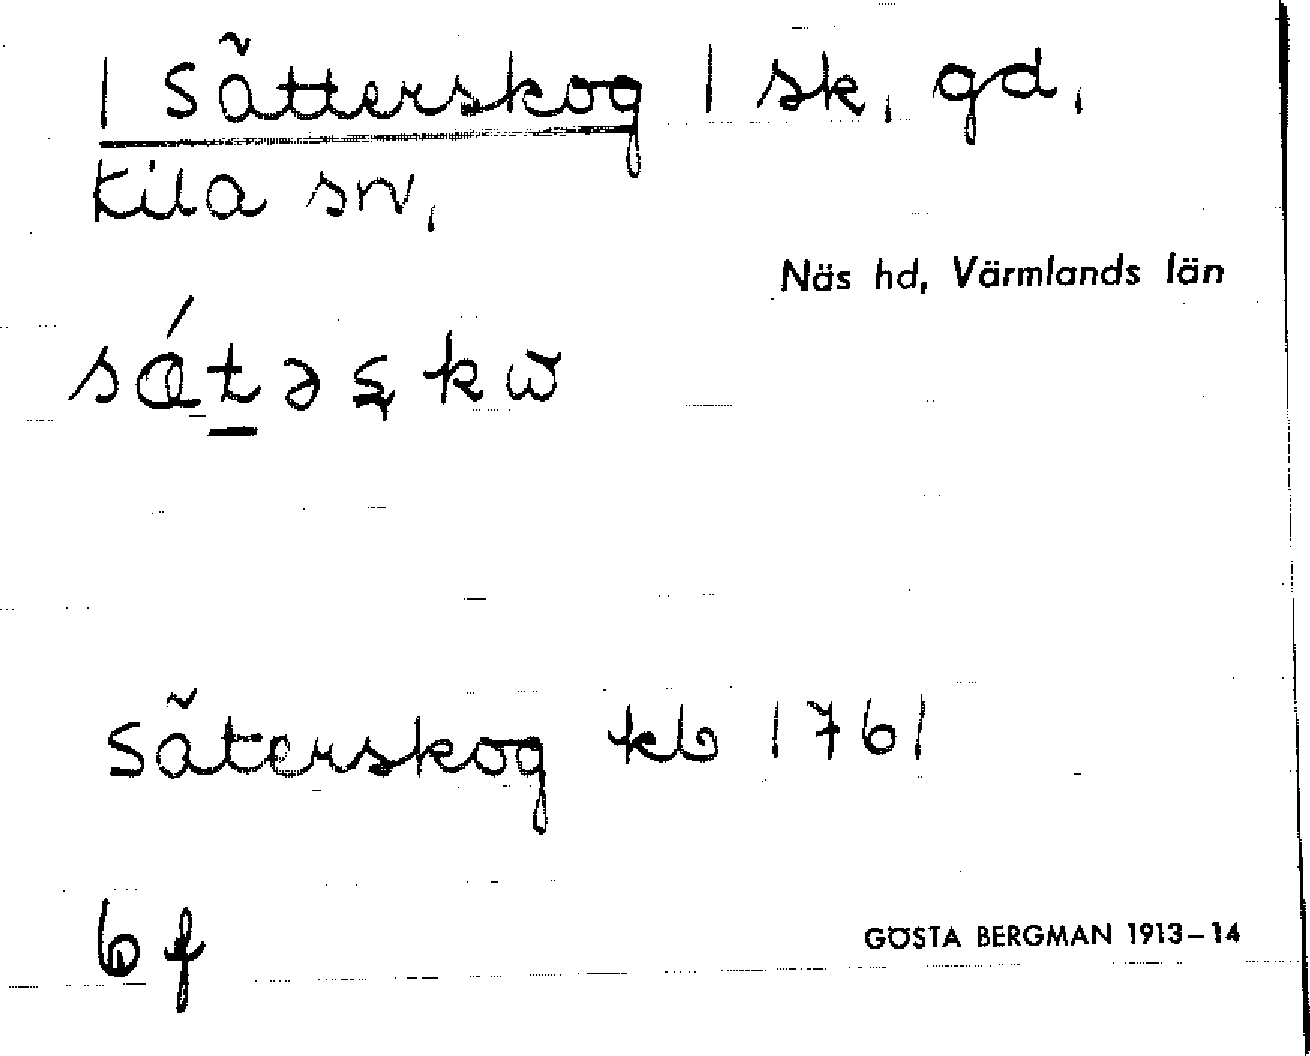 1 Sätterskog 1 sk, gd,
Kila sn,
Näs hd, Värmlands län
Säterskog kb 1761
GÖSTA BERGMAN 1913–14